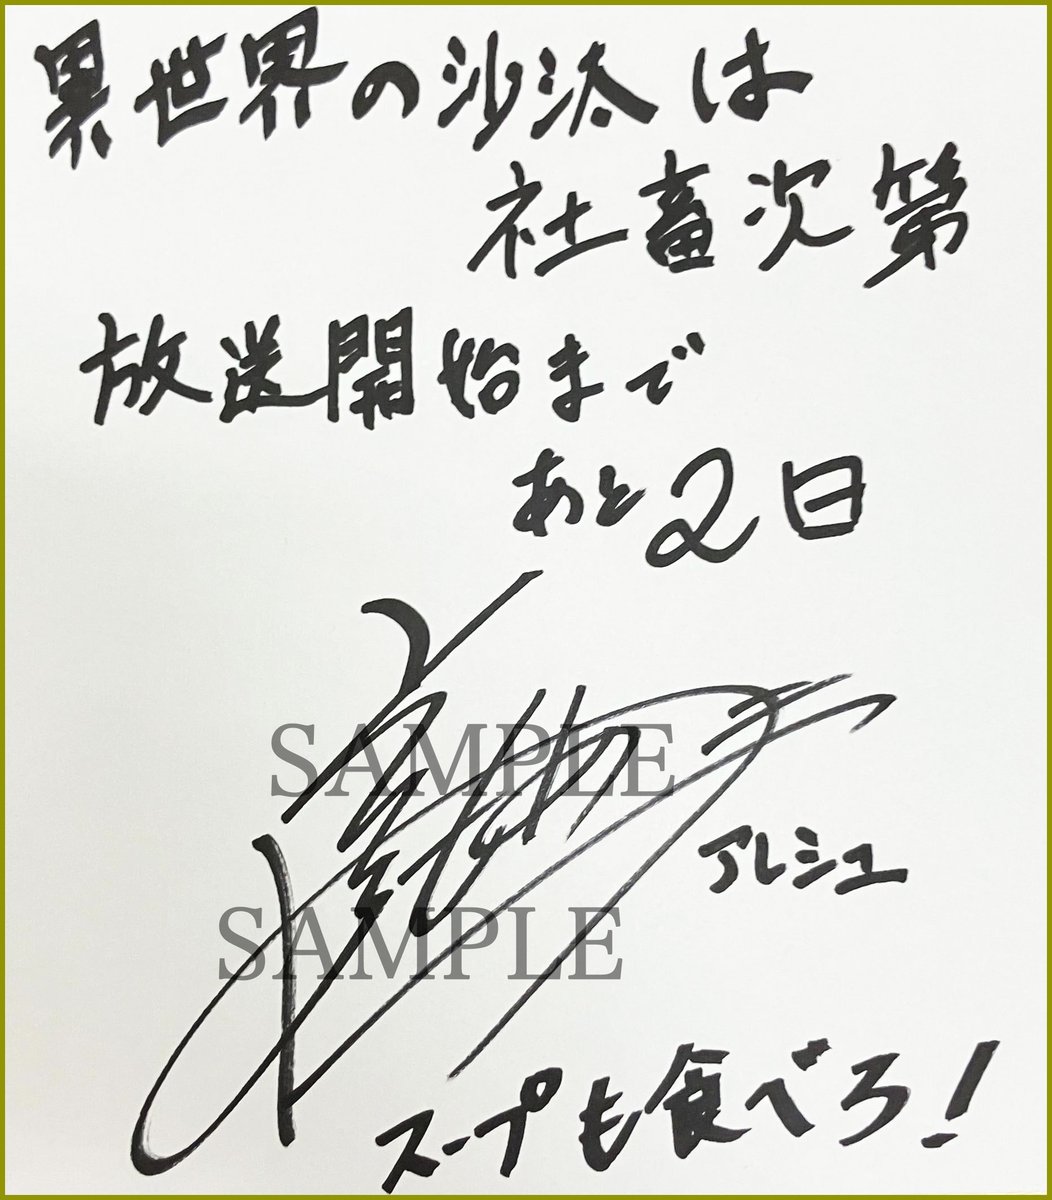 異世界の沙汰は
社畜次第
放送開始まで
あと2日
SAMPLE
アレシュ
SAMPLE
スープも食べろ!